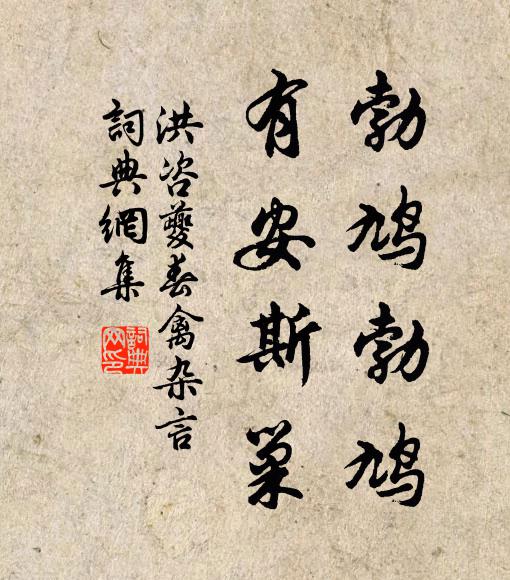 勃鸠勃鸠
有安斯巢
洪咨夔春禽杂言
詞典網集
詞典网印